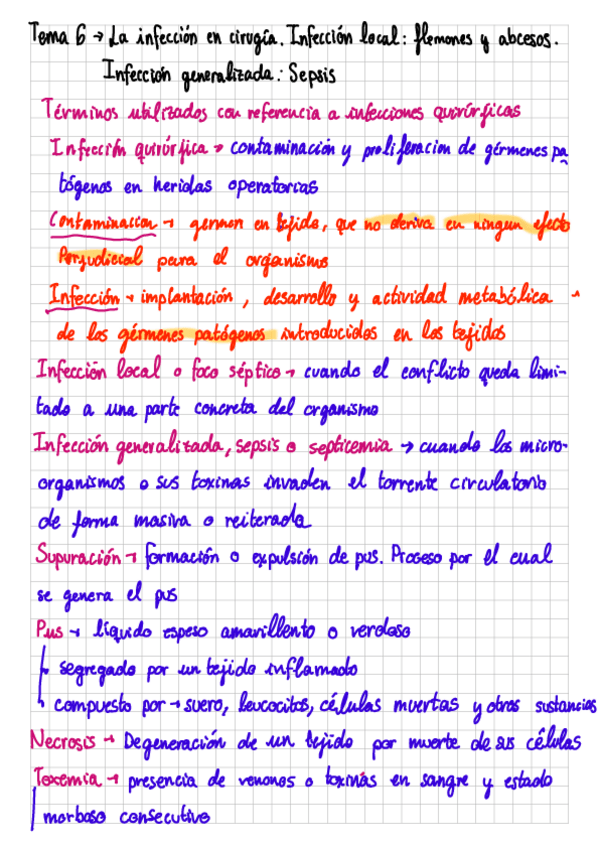 Tema 6 → La infección en cirugía. Infección local: flemones y abcesos.
Infección generalizada: Sepsis
Términos utilizados con referencia a infecciones quirúrgicas
Infección quirúrgica → contaminación y proliferación de gérmenes pa
tógenos en heridas operatorias
Contaminación → germen en tejido, que no deriva en ningun efecto
Perjudicial para el organismo
Infección → implantación, desarrollo y actividad metabólica
de los gérmenes patógenos introducidos en los tejidos
Infección local o foco séptico → cuando el conflicto queda limi-
tado a una parte concreta del organismo
Infección generalizada, sepsis o septicemia → cuando los micro-
organismos o sus toxinas invaden el torrente circulatorio
de forma masiva o reiterada
Supuración → formación o expulsión de pus. Proceso por el cual
se genera el pus
Pus → líquido espeso amarillento o verdoso
segregado por un tejido inflamado
compuesto por → suero, leucocitos, células muertas y otras sustancias
Necrosis → Degeneración de un tejido por muerte de sus células
Toxemia → presencia de venenos o toxinas en sangre y estado
morboso consecutivo